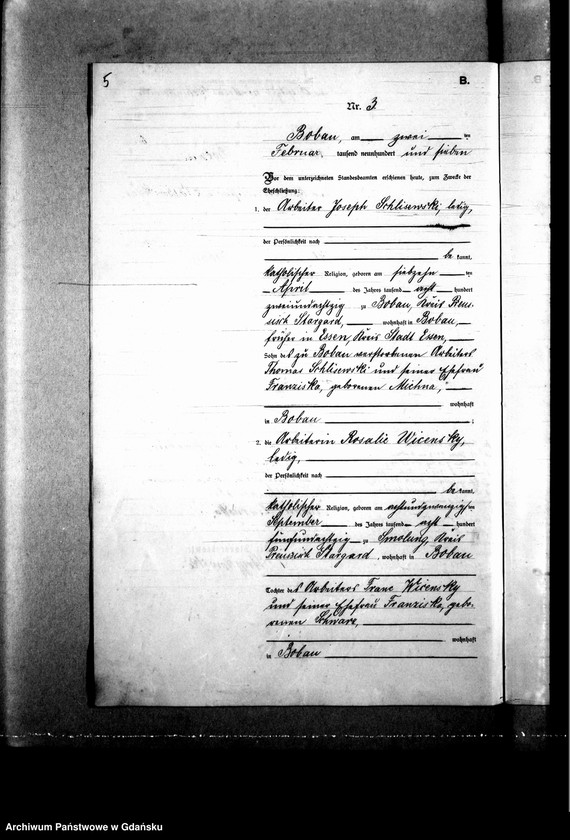 5
B.
Nr. 3.
Bobau, am zwei ten
Februar tausend neunhundert und sieben
Vor dem unterzeichneten Standesbeamten erschienen heute, zum Zwecke der
Eheschließung:
1. der Arbeiter Joseph Schlisewski, ledig,
der Persönlichkeit nach
be kannt,
katholischer Religion, geboren am siebzehn ten
April des Jahres tausend acht hundert
zweiundachtzig zu Bobau, Kreis Preu-
ssisch Stargard, wohnhaft in Bobau,
früher in Essen, Kreis Stadt Essen,
Sohn des zu Bobau verstorbenen Arbeiters
Thomas Schlisewski und seiner Ehefrau
Franziska, geborenen Michna,
wohnhaft
in Bobau ;
2. die Arbeiterin Rosalie Wicensky,
ledig,
der Persönlichkeit nach
be kannt,
katholischer Religion, geboren am achtundzwanzigsten
September des Jahres tausend acht hundert
fünfundachtzig zu Smolung, Kreis
Preussisch Stargard, wohnhaft in Bobau
Tochter des Arbeiters Franz Wicensky
und seiner Ehefrau Franziska, gebo-
renen Schwarz,
wohnhaft
in Bobau
Archiwum Państwowe w Gdańsku